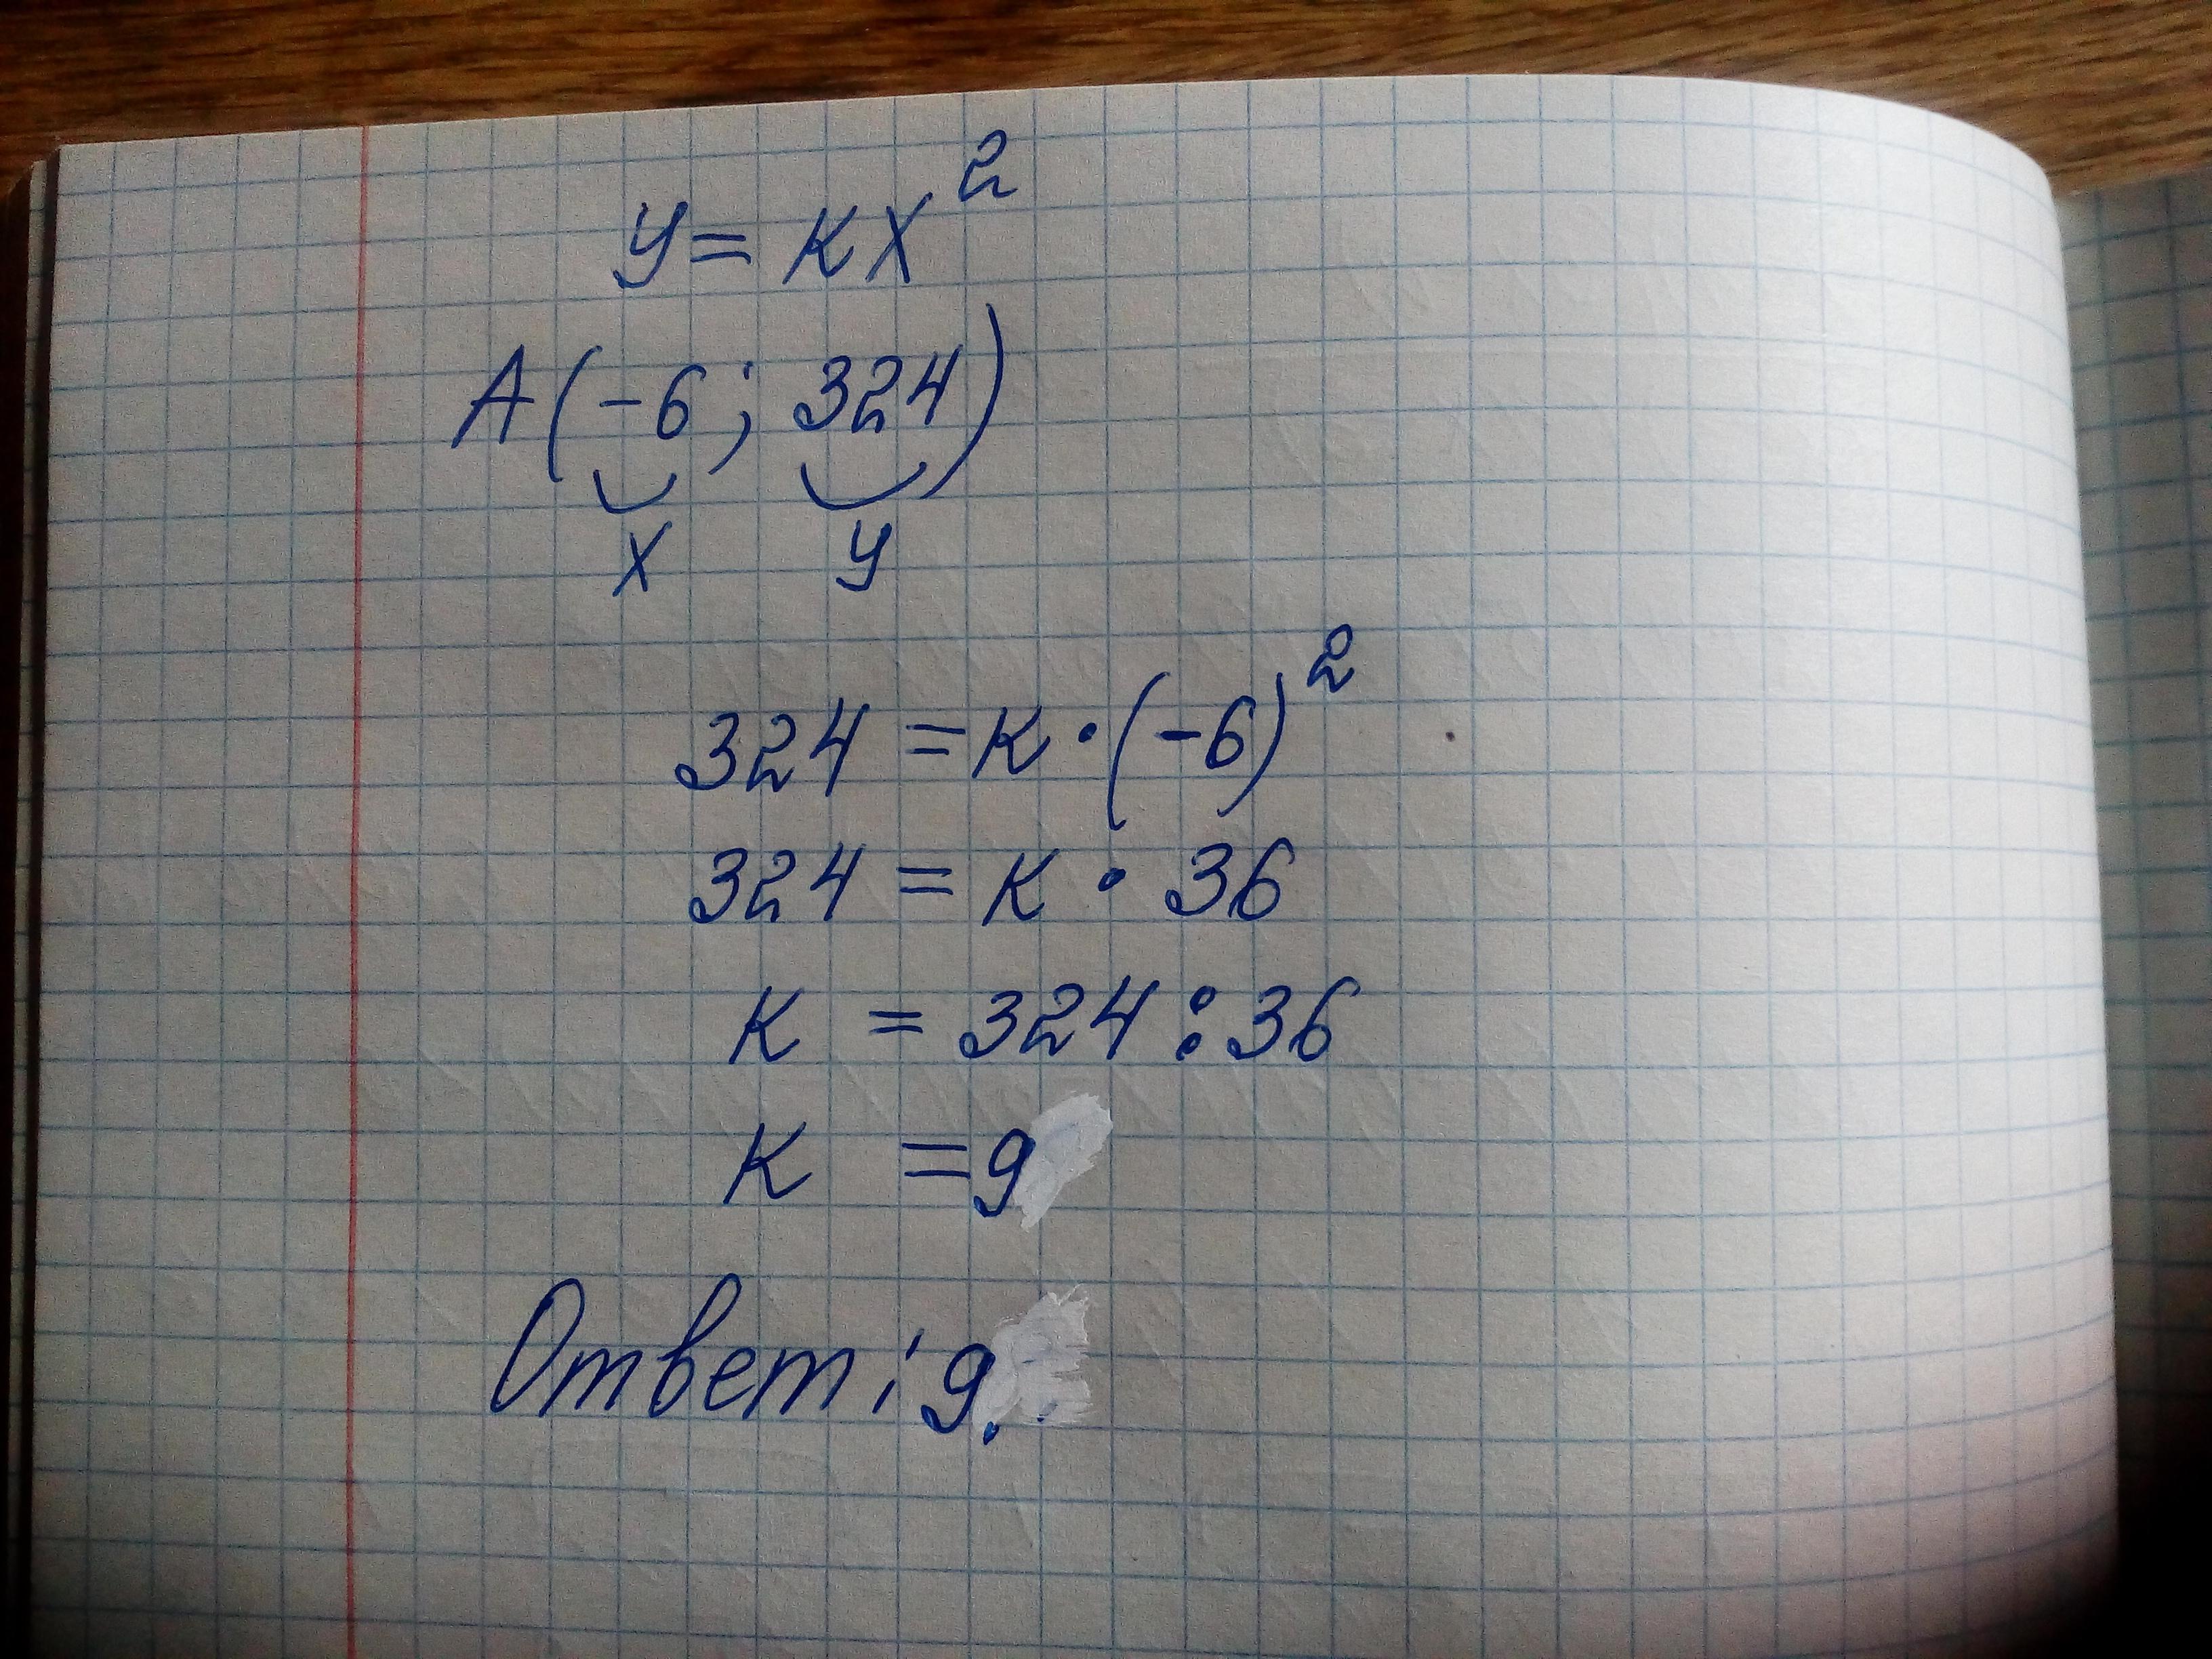 y = kx²
A(-6; 324)
x y
324 = k · (-6)²
324 = k · 36
k = 324 : 36
k = 9
Ответ: 9.